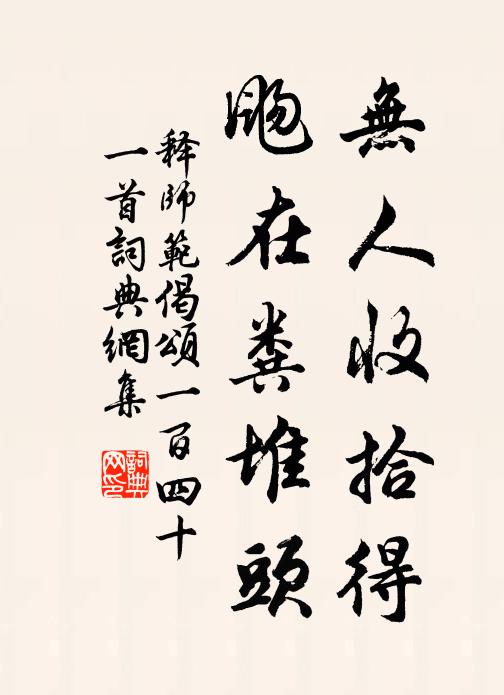 無人收拾得
颺在粪堆頭
释師範偈頌一百四十
一首詞典網集
詞典
网印